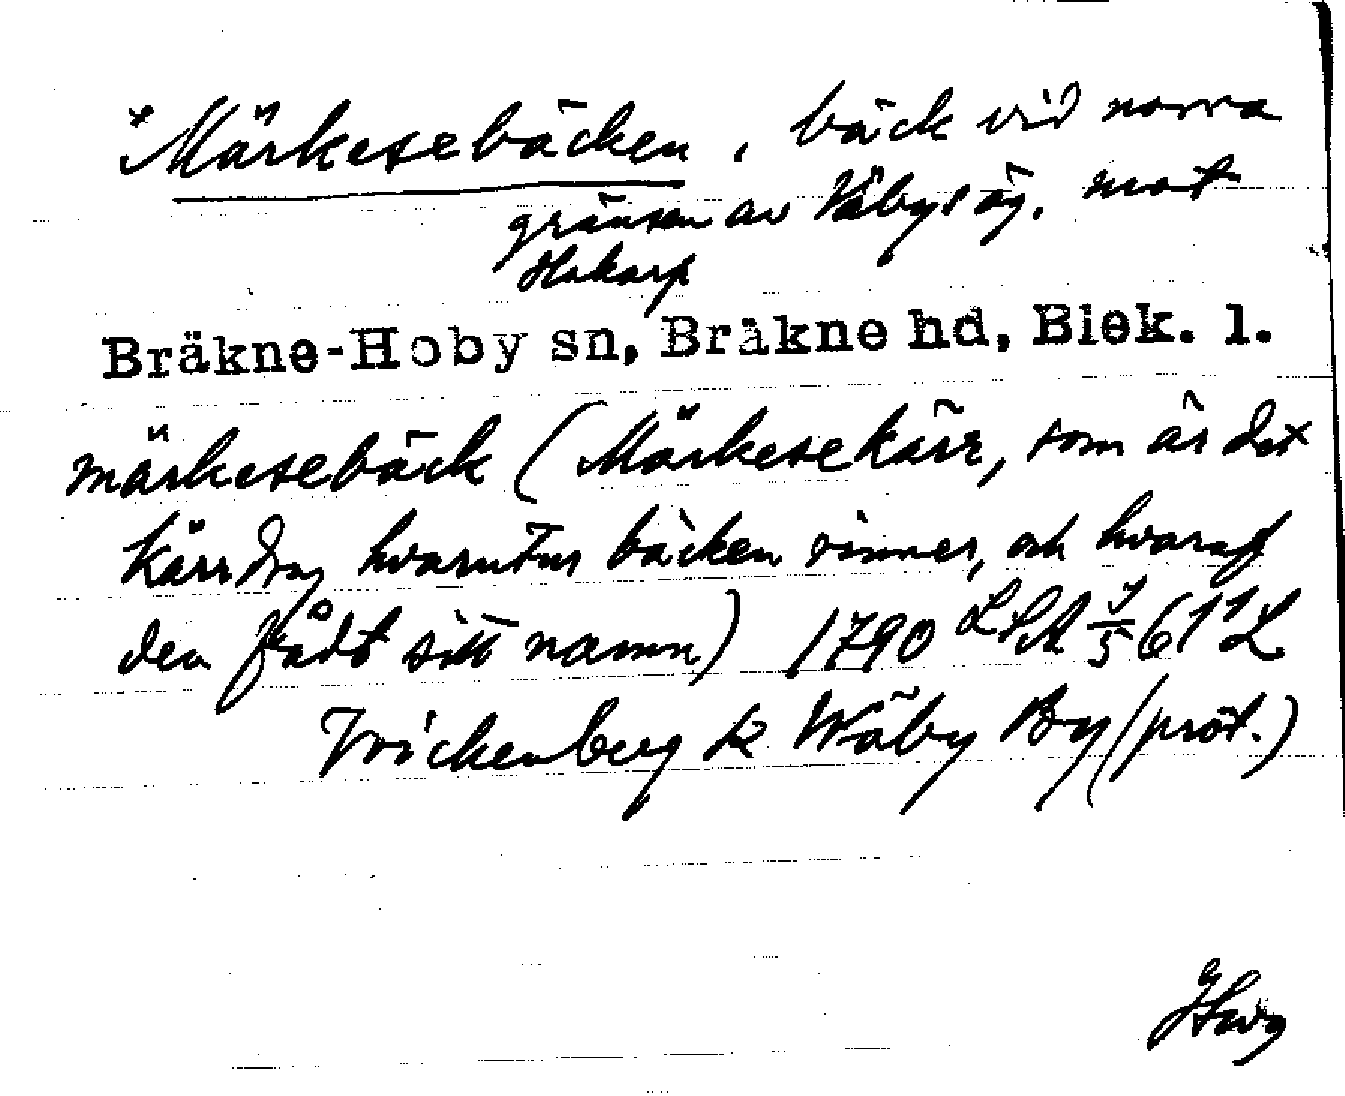 *Märkesebäcken, bäck vid norra
gränsen av Väbys äg. mot
Hakarp
Bräkne-Hoby sn, Bräkne hd, Blek. l.
märkesebäck (Märkesekärr, som är det
Kärrdrag hvarutur bäcken rinner, och hvaraf
den fådt sitt namn) 1790 LSA
Wäby By (prot.)